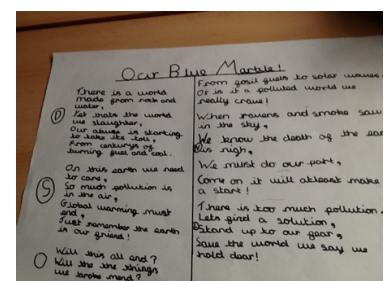 Our Blue Marble!
There is a world
made from rock and
water,
Yet thats the world
we slaughter,
Our abuse is starting
to take its toll,
From centurys of
burning fuel and coal.
On this earth we need
to care,
So much pollution is
in the air,
Global warming must
end,
Just remember the earth
is our friend!
Will this all end?
Will the the things
we broke mend?
From fosil fuels to solar waves
Or is it a polluted world we
really crave!
When ravens and smoke
in the sky,
We know the death of the
is nigh,
We must do our part,
Come on it will atleast make
a start!
There is too much pollution
Lets find a solution,
Stand up to our fear,
Save the world we say we
hold dear!